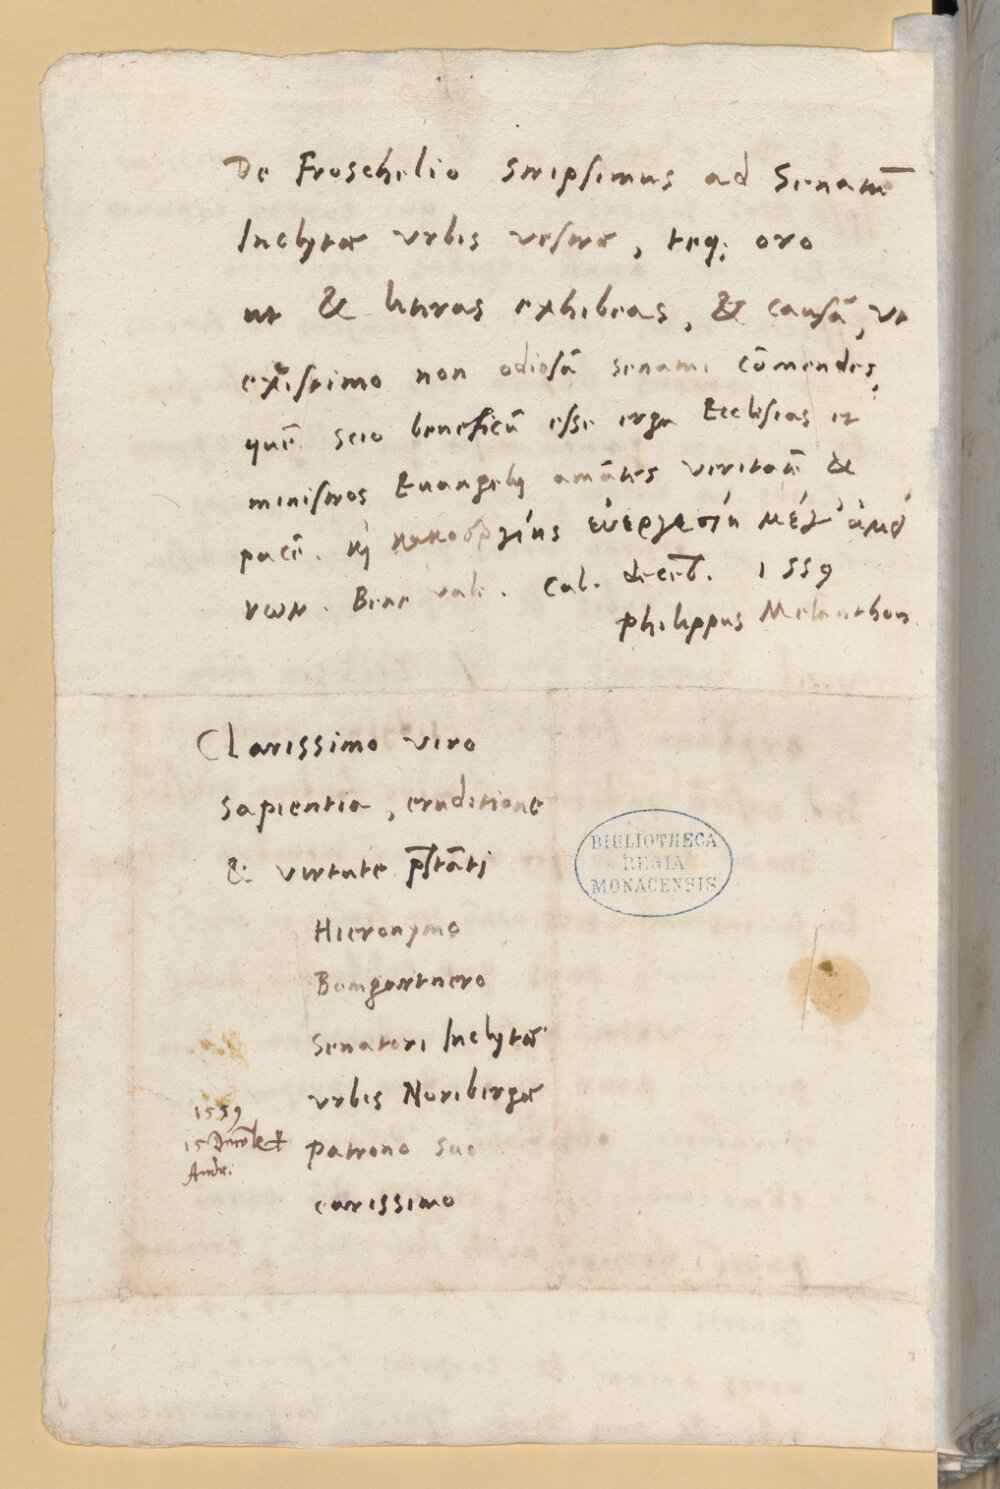 De Froschelio scripsimus ad Senatū
Inclytæ vrbis vestræ, teq; oro
ut & literas exhibeas, & causā, vt
existimo non odiosā senatui cōmendes,
quē scio beneficū esse erga Ecclesias et
ministros Euangelij amātes veritatē &
pacē. κὶ κακοεργίης εὐεργεσίη μέγ' ἀμεί
νων. Bene vale. Cal. decēb. 1559
philippus Melanthon.
Clarissimo viro
sapientia, eruditione
& virtute p̄stāti
Hieronymo
Bomgartnero
Senatori Inclytæ
vrbis Noribergæ
patrono suo
carissimo
1559
15
BIBLIOTHECA
REGIA
MONACENSIS